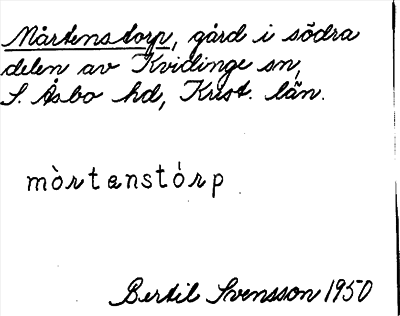 Mårtenstorp, gård i södra
delen av Kvidinge sn,
S. Åsbo hd, Krist. län.
mòrtənstórp
Bertil Svensson 1950